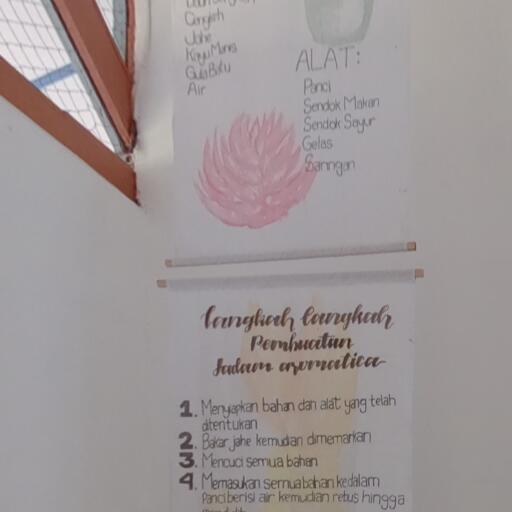 Cengkeh
Jahe
Kayu Manis
Gula Batu
Air
ALAT:
Panci
Sendok Makan
Sendok Sayur
Gelas
Saringan
Langkah langkah
Pembuatan
Jadam aromatica
1. Menyiapkan bahan dan alat yang telah
ditentukan
2. Bakar jahe kemudian dimemarkan
3. Mencuci semua bahan
4. Memasukan semua bahan kedalam
Panci berisi air kemudian retus hingga